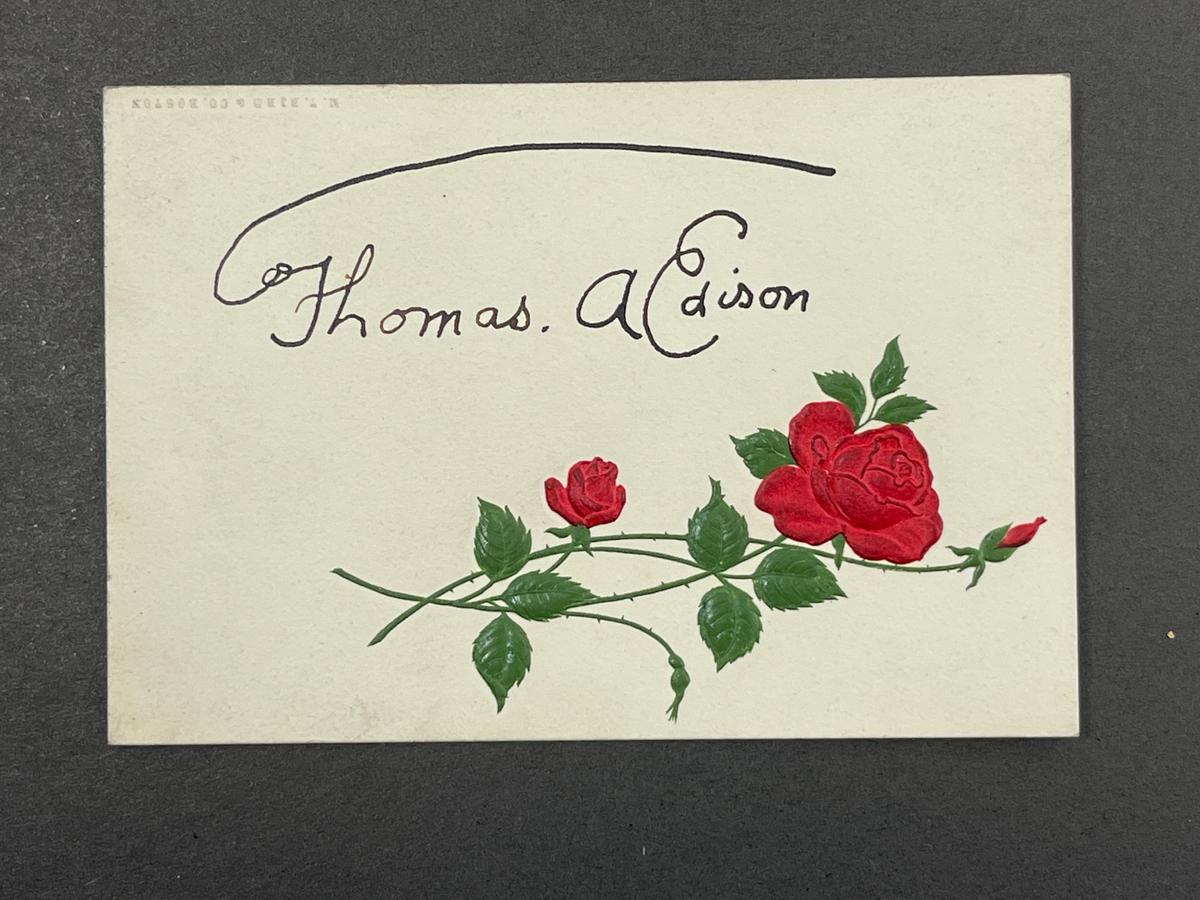 N.T. BIRD & CO. BOSTON
Thomas. A Edison